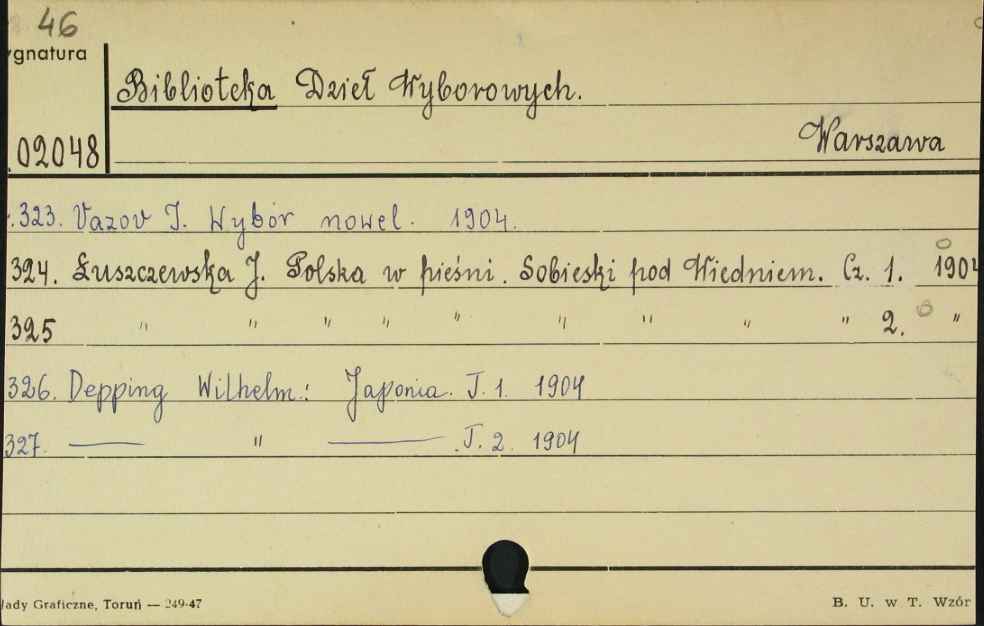 46
ygnatura
Biblioteka Dzieł Wyborowych.
02048
Warszawa
323. Vazov J. Wybór nowel. 1904.
324. Łuszczewska J. Polska w pieśni. Sobieski pod Wiedniem. Cz. 1. 1904
325 " " " " " " " " " 2. "
326. Depping Wilhelm.: Japonia. T. 1. 1904
327. — " — . T. 2. 1904
łady Graficzne, Toruń — 249-47
B. U. w T. Wzór